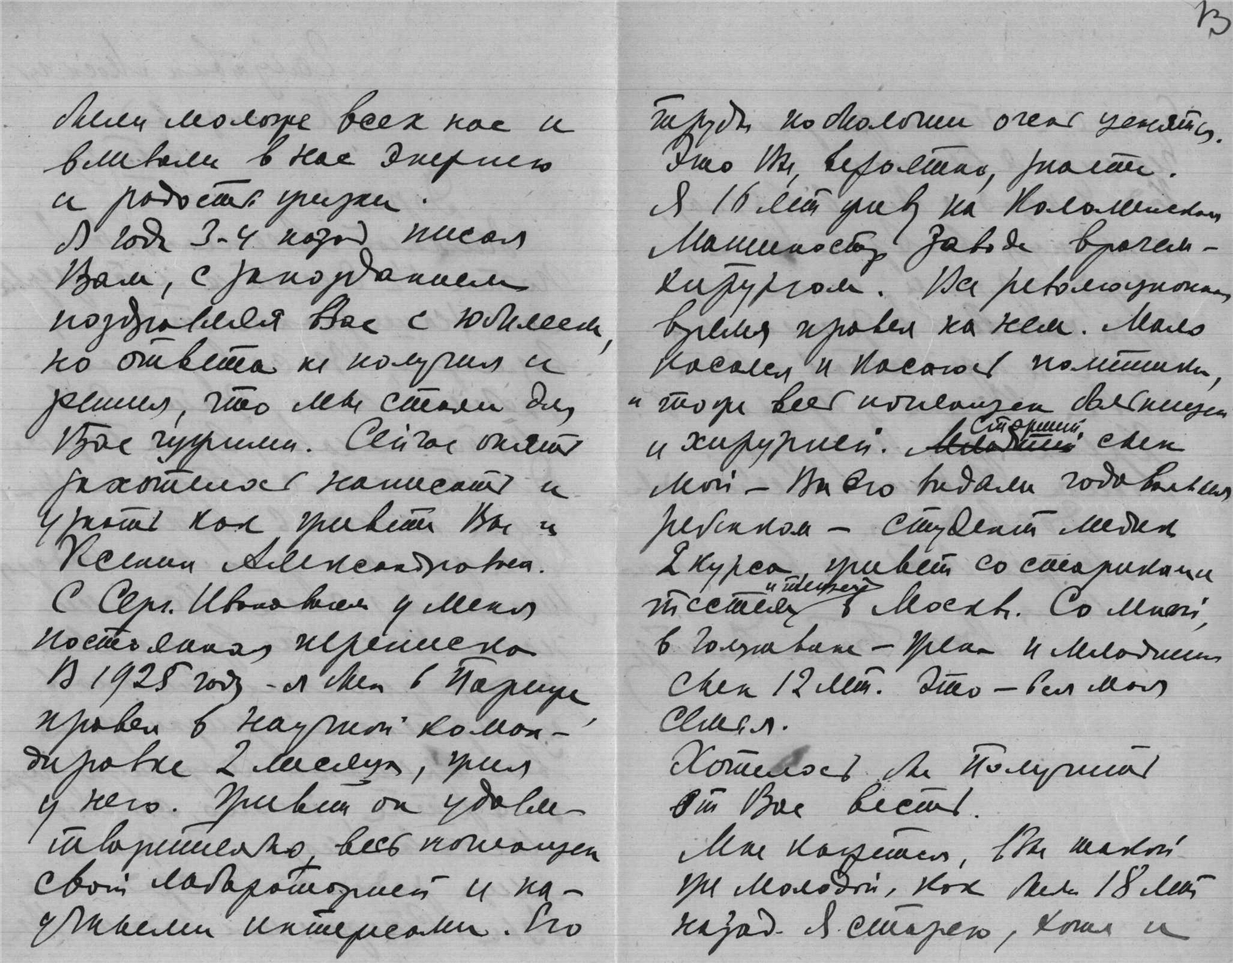 13
были моложе всех нас и
вливали в нас энергию
и радость жизни.
Я года 3-4 назад писал
Вам, с запозданием
поздравляя Вас с юбилеем,
но ответа не получил и
решил, что мы стали для
Вас чужими. Сейчас опять
захотелось написать и
узнать как живете Вы и
Ксения Александровна.
С Серг. Ивановичем у меня
постоянная переписка
В 1925 году - я был в Париже,
провел в научной коман-
дировке 2 месяца, жил
у него. Живет он удовле-
творительно, весь поглощен
своей лабораторией и на-
учными интересами. Его
труды по биологии очень ценятся.
Это Вы, вероятно, знаете.
Я 16 лет живу на Коломенском
Машиностр заводе врачем-
хирургом. Все революционное
время провел на нем. Мало
касался и касаюсь политики,
и тогда весь поглощен больницей
и хирургией. Старший сын
мой - Вы его видали годовалым
ребенком - студент медик
2 курса, живет со стариками
тестем и тещей в Москве. Со мной,
в Голутвине - жена и младший
сын 12 лет. Это - вся моя
семья.
Хотелось бы получить
от Вас вести.
Мне кажется, Вы такой
же молодой, как были 18 лет
назад. Я старею, хотя и